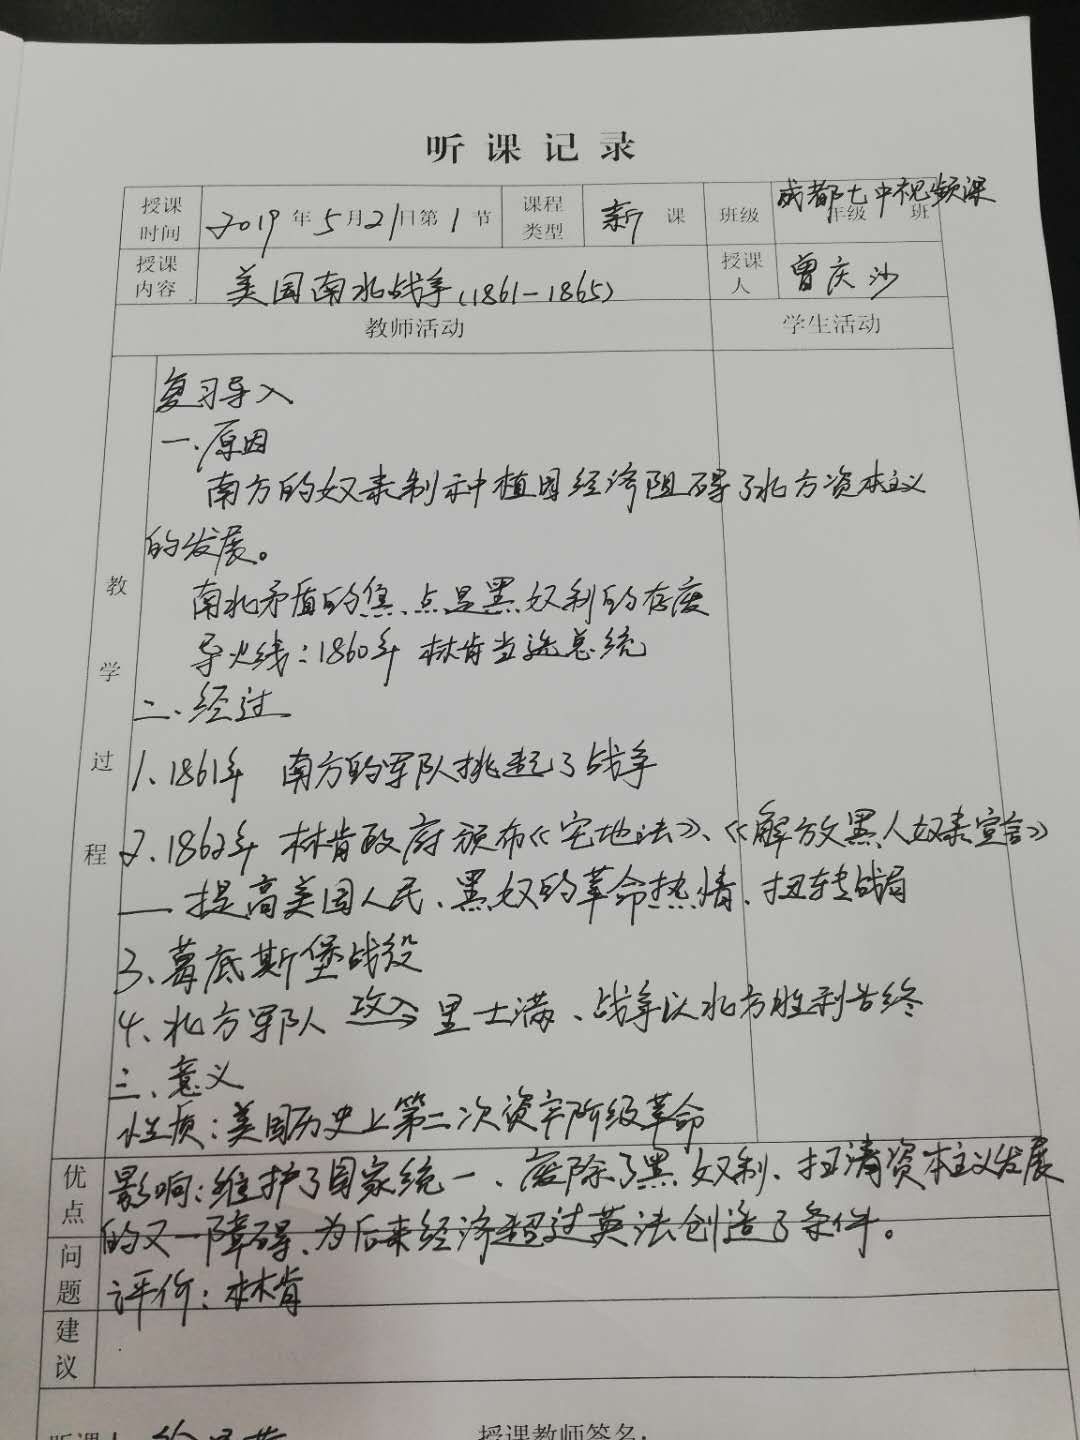 听课记录
授课时间 2019年5月21日第1节 课程类型 新课 班级 成都七中视频课 年级 班
授课内容 美国南北战争(1861-1865) 授课人 曾庆沙
教师活动 学生活动
教学过程
复习导入
一、原因
南方的奴隶制种植园经济阻碍了北方资本主义
的发展。
南北矛盾的焦点是黑奴制的存废
导火线：1860年 林肯当选总统
二、经过
1、1861年 南方的军队挑起了战争
2、1862年 林肯政府颁布《宅地法》、《解放黑人奴隶宣言》
— 提高美国人民、黑奴的革命热情、扭转战局
3、葛底斯堡战役
4、北方军队 攻入 里士满、战争以北方胜利告终
三、意义
性质：美国历史上第二次资产阶级革命
优点 影响：维护了国家统一、废除了黑奴制、扫清资本主义发展
的又一障碍、为后来经济超过英法创造了条件。
问题 评价：林肯
建议
听课人 授课教师签名：